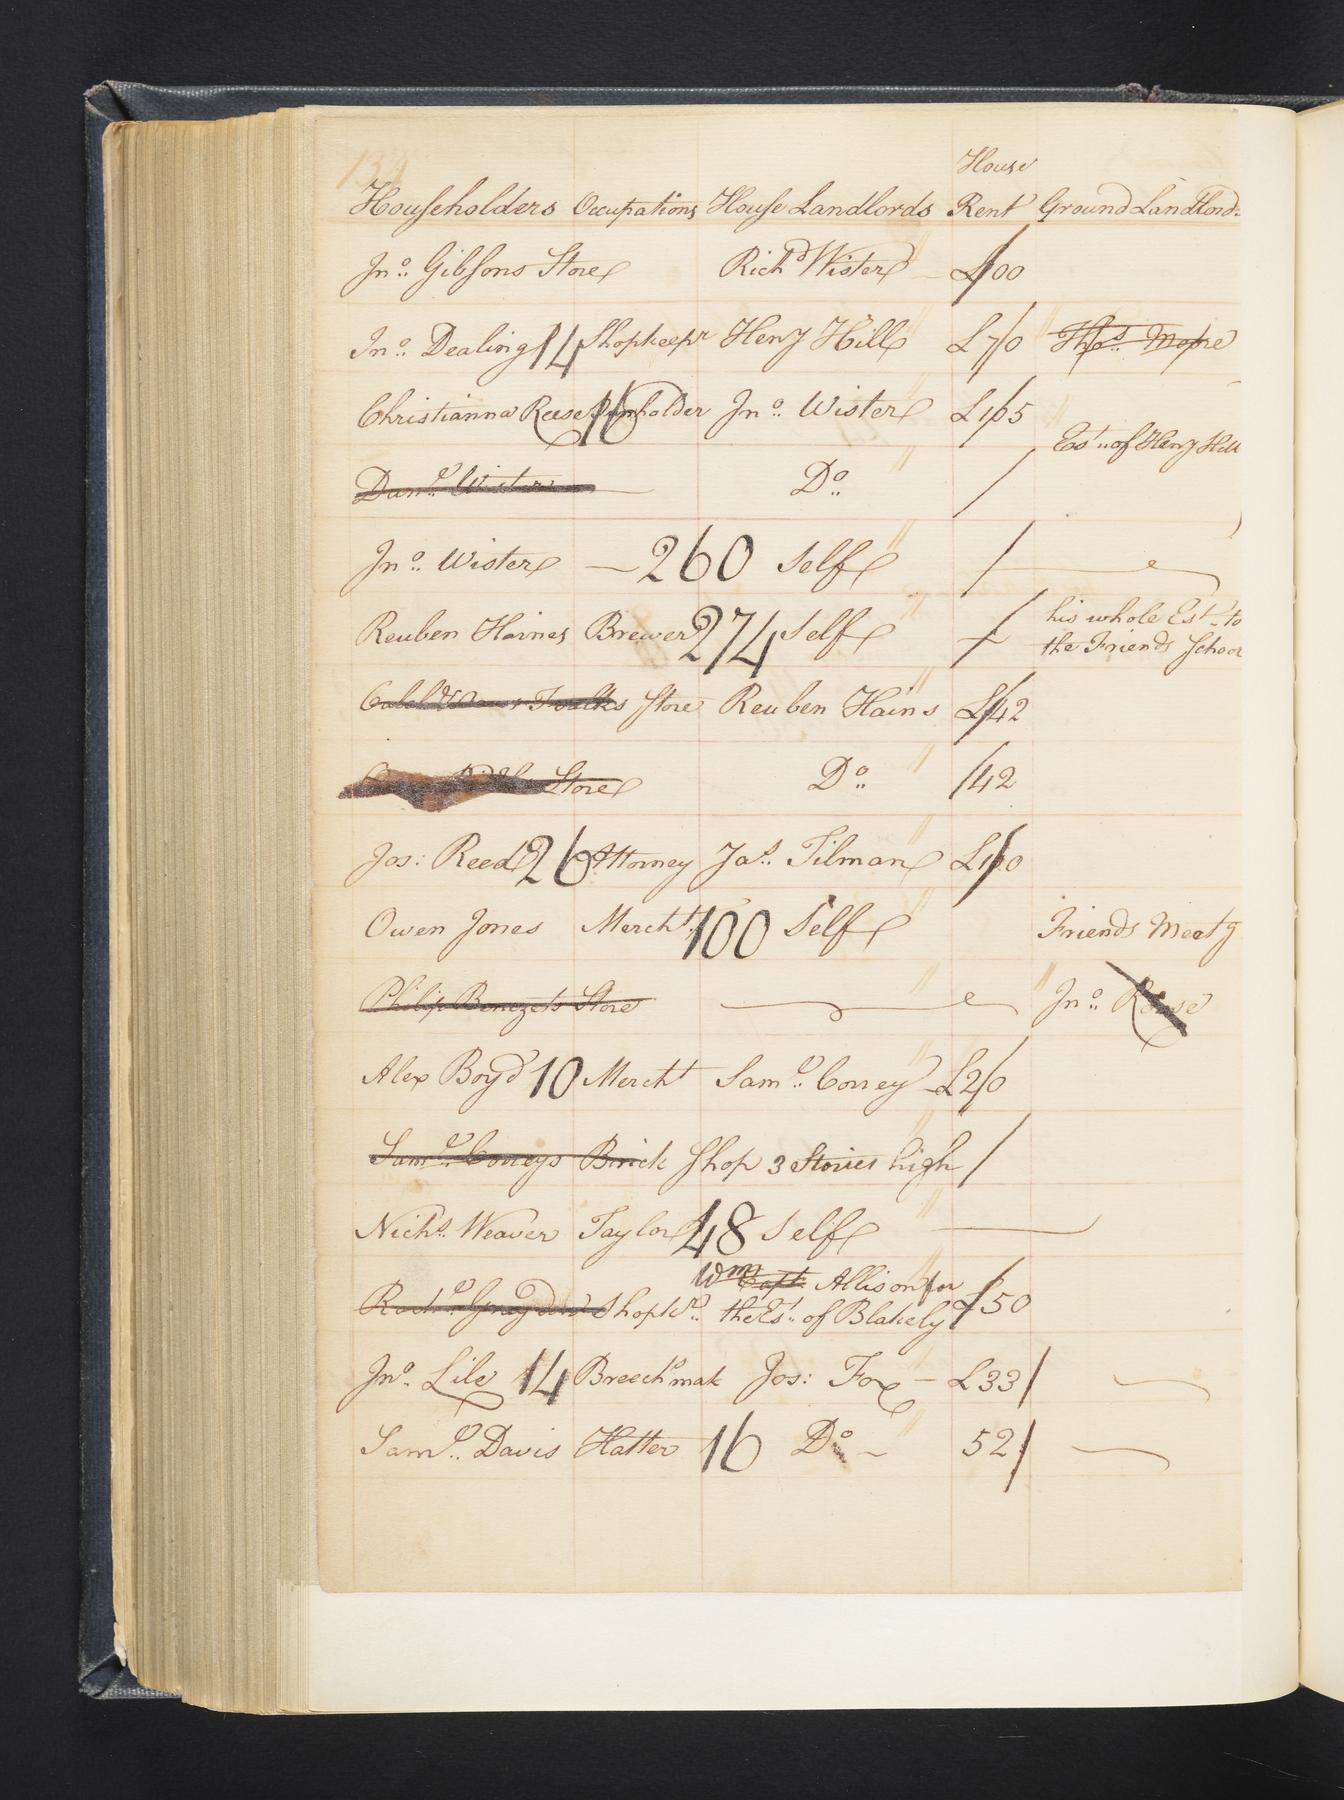 134
House
Householders Occupations House Landlords Rent Ground Landlords
Jno. Gibsons Store Richd Wister £100
Jno. Dealing 14 Shopkeepr Henry Hill £70 Thos. Moore
Christianna Reese 16 Innholder Jno. Wister £165
Est. of Henry Hill
Danl. Wister Do.
Jno. Wister 260 Self
Reuben Haines Brewer 274 Self his whole Est. to
the Friends School
Store Reuben Hains £42
Store Do. 42
Jos: Reed 26 Attorney Jas. Tilman £100
Owen Jones Mercht. 100 Self Friends Meetg
Philip Benezets Store Jno. Reese
Alex Boyd 10 Mercht Saml. Correy £20
Saml. Correys Brick Shop 3 Stories high
Nichs. Weaver Taylor 48 Self
Wm Capt. Allison for
Shopkr. the Est. of Blakely £50
Jno. Lile 14 Breechs mak Jos: Fox £33
Saml. Davis Hatter 16 Do. 52